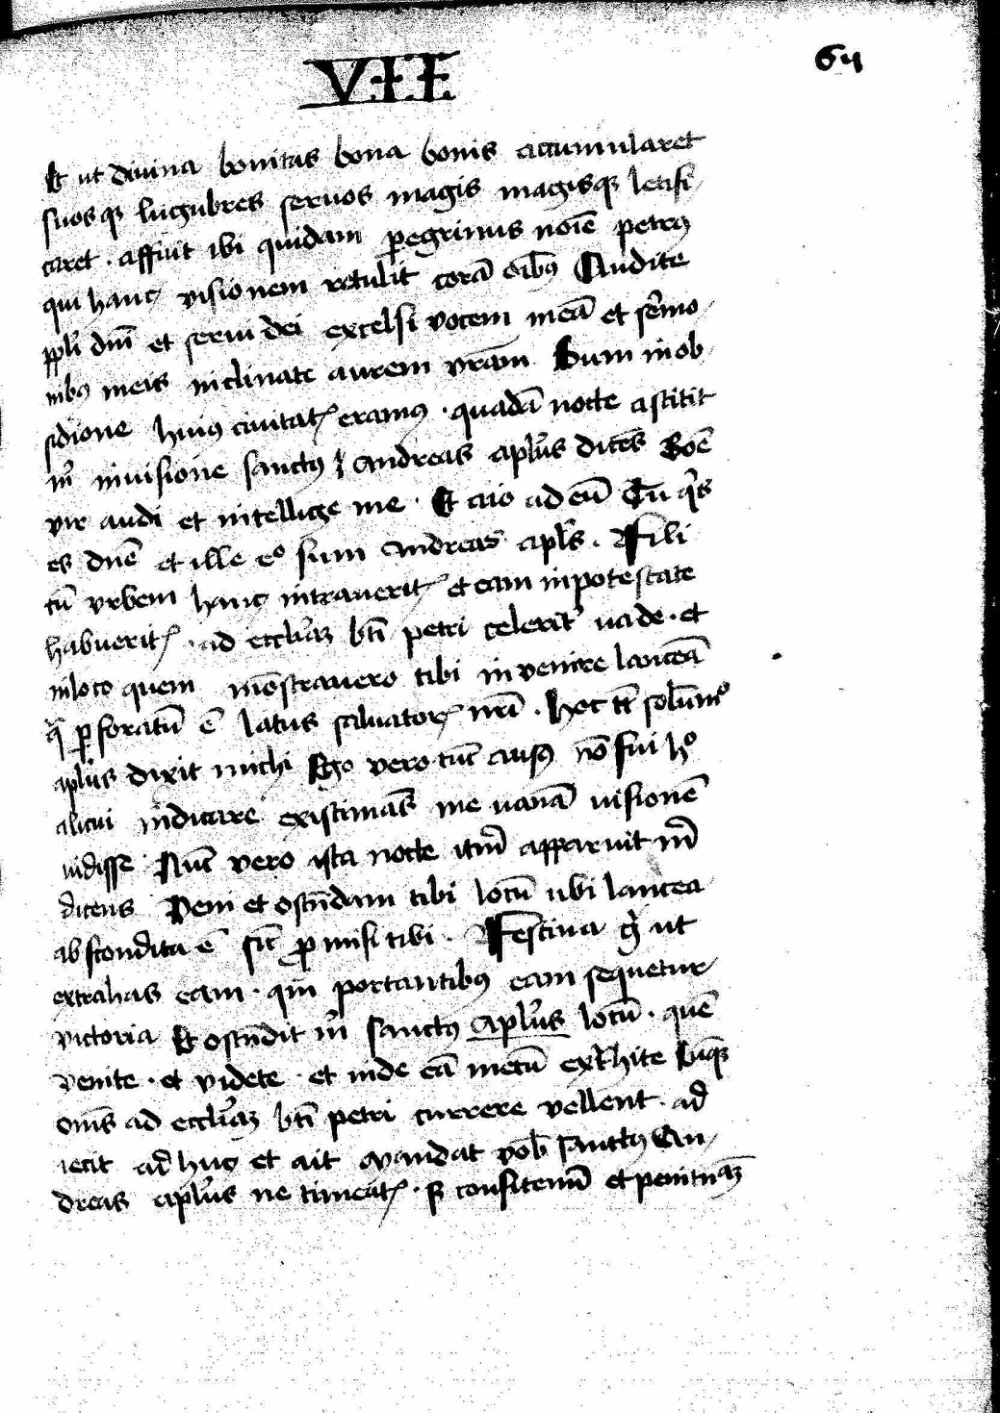 VII
64
Et ut divina bonitas bona bonis accumularet
suosqꝫ lugubres servos magis magisqꝫ letifi
caret . affuit ibi quidam ꝑegrinus noīe petrꝰ
qui hanc visionem retulit corā oībꝰ Audite
ppl̄i dnī et servi dei excelsi vocem meā et sermo
nibꝰ meis inclinate aurem vr̄am Dum in ob
sidione huiꝰ civitatꝭ eramꝰ . quadā nocte astitit
m̄ in visione sanctꝰ andreas apl̄us dicēs Boē
vir audi et intellige me . Et aio ad eū Tu qͥs
es dnē et ille eͦ sum andreas apl̄s . Fili
cū urbem hanc intraveritꝭ et eam in potestate
habueritꝭ . ad eccl̄iaꝫ bt̄i petri celeritͤ vade . et
in loco quem mōstravero tibi invenire lanceā
q̄ ꝑforatū ē latus salvatorꝭ nr̄i . Hec tm̄ solūmͦ
apl̄us dixit michi Ego vero tūc ausꝰ nō fui hͦ
alicui indicare existimās me vanā visionē
vidisse Nūc vero ista nocte itm̄ apparuit m̄
dicens Veni et ostēdam tibi locū ubi lancea
abscondita ē sic̄ ꝓmisi tibi . Festina gͦ ut
extrahas eam . qm̄ portantibꝰ eam sequetur
victoria Et ostēdit m̄ sanctꝰ apl̄us locū . quē
venite . et videte . et inde eā mecū ext̄hite Cūqꝫ
om̄s ad eccl̄iaꝫ bt̄i petri currere vellent . ad
iecit adhuc et ait Mandat vob̄ sanctꝰ An
dreas apl̄us ne timeatꝭ . sꝫ confitemī et penitn̄aꝫ